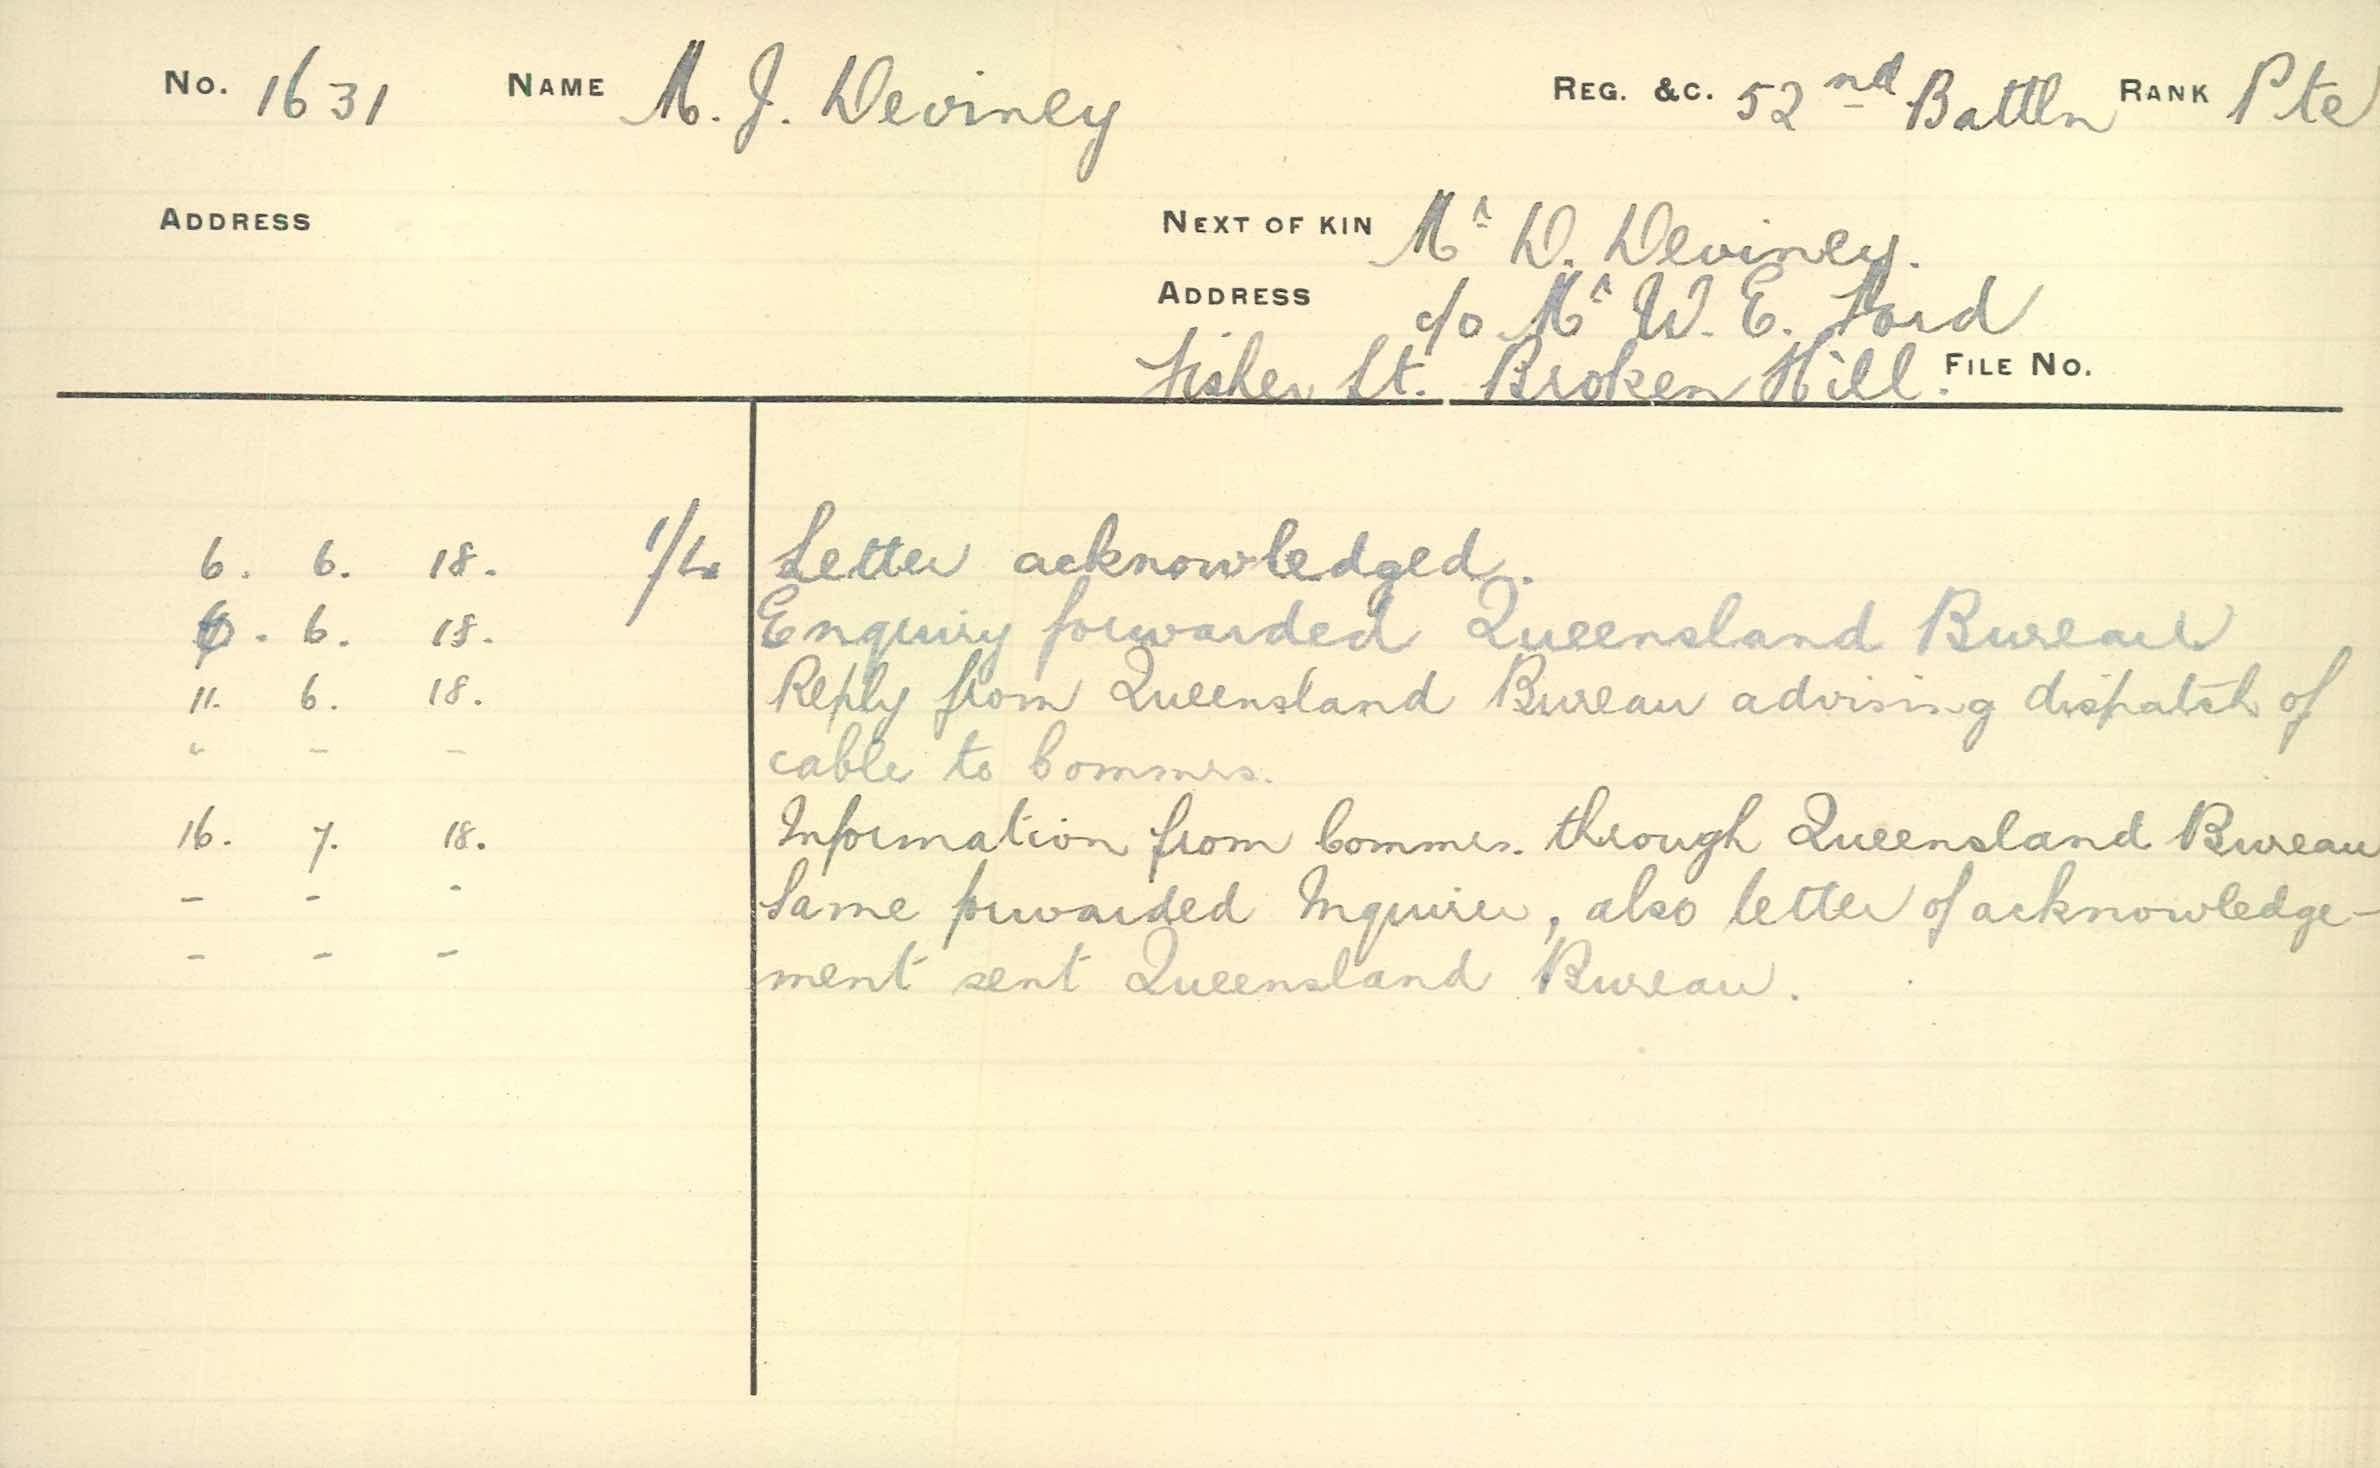 No. 1631 NAME M. J. Deviney REG. &C. 52nd Battln RANK Pte
ADDRESS
NEXT OF KIN Mr D. Deviney.
ADDRESS c/o Mr W. E. Ford
Fisher St. Broken Hill. FILE No.
6. 6. 18. Letter acknowledged.
6. 6. 18. Enquiry forwarded Queensland Bureau
11. 6. 18. Reply from Queensland Bureau advising dispatch of
" - - cable to Commrs.
16. 7. 18. Information from Commrs. through Queensland Bureau
- - - Same forwarded Inquirer, also letter of acknowledge-
- - - ment sent Queensland Bureau.